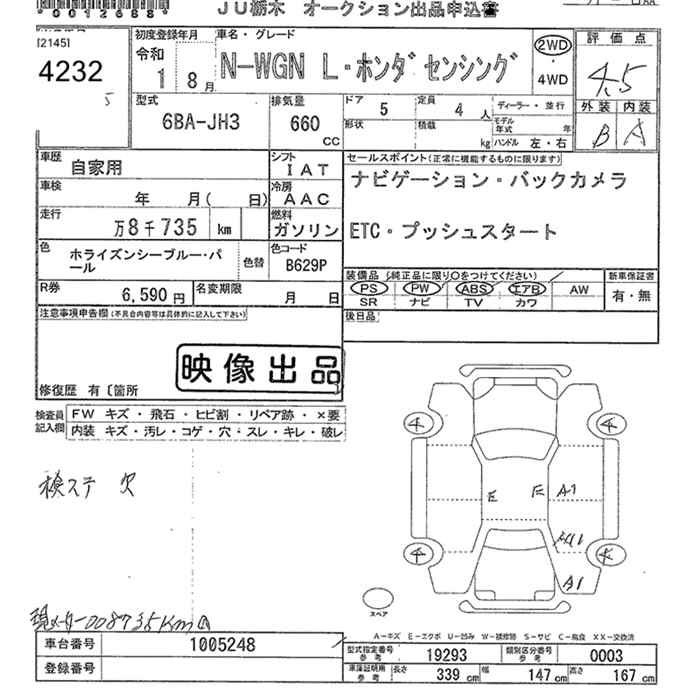 *00126881*
JU栃木 オークション出品申込書
[2145]
4232
初度登録年月
令和
1 8月
車名・グレード
N-WGN L・ホンダ センシング
2WD
・
4WD
評価点
4.5
外装 内装
B A
型式
6BA-JH3
排気量
660 CC
ドア 5
形状
定員 4 人
積載 kg
ディーラー・並行
モデル年式 年
ハンドル 左・右
車歴 自家用
シフト IAT
車検 年 月( 日)
冷房 AAC
走行 万8千735 km
燃料 ガソリン
色 ホライズンシーブルー・パール
色替
色コード B629P
R券 6,590円
名変期限 月 日
セールスポイント(正常に機能するものに限ります)
ナビゲーション・バックカメラ
ETC・プッシュスタート
装備品(純正品に限り○をつけてください)
PS PW ABS エアB AW
SR ナビ TV カワ
新車保証書
有・無
後日品
注意事項申告欄(不具合内容等は具体的に記入して下さい)
映像出品
修復歴 有〔箇所
検査員記入欄
FW キズ・飛石・ヒビ割・リペア跡・×要
内装 キズ・汚レ・コゲ・穴・スレ・キレ・破レ
検ステ欠
E E A1
A1
スペア
現メーター008735Km
A-キズ E-エクボ U-凹み W-補修跡 S-サビ C-腐食 XX-交換済
車台番号 1005248
登録番号
型式指定番号 参考 19293
類別区分番号 参考 0003
車庫証明用 参考 長さ 339 cm 幅 147 cm 高さ 167 cm